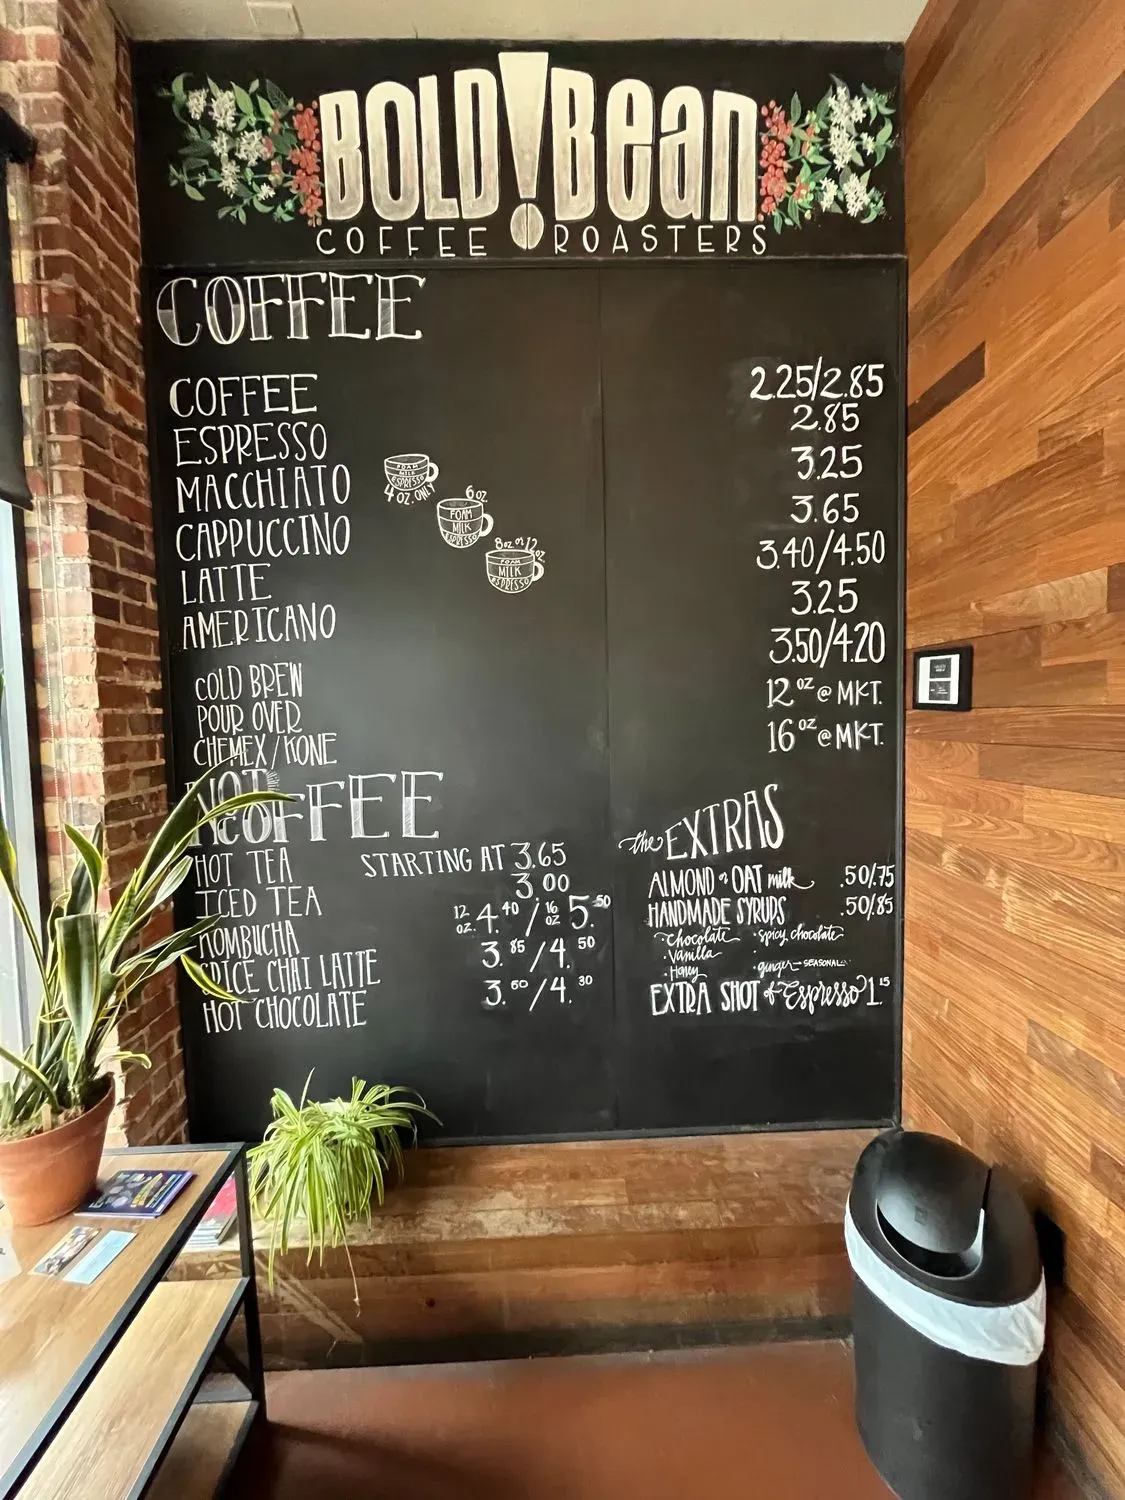 BOLD!Bean
COFFEE ROASTERS
COFFEE
COFFEE 2.25/2.85
ESPRESSO 2.85
MACCHIATO 3.25
CAPPUCCINO 3.65
LATTE 3.40/4.50
AMERICANO 3.25
COLD BREW 3.50/4.20
POUR OVER 12 oz @ MKT.
CHEMEX/KONE 16 oz @ MKT.
FOAM
MILK
ESPRESSO
4 OZ. ONLY
6 OZ.
FOAM
MILK
ESPRESSO
8oz. or 12 oz.
FOAM
MILK
ESPRESSO
NOT COFFEE
HOT TEA STARTING AT 3.65
ICED TEA 3.00
KOMBUCHA 12 OZ. 4.40 / 16 OZ 5.50
SPICE CHAI LATTE 3.85/4.50
HOT CHOCOLATE 3.60/4.30
the EXTRAS
ALMOND or OAT milk .50/.75
HANDMADE SYRUPS .50/.85
·Chocolate ·spicy chocolate
·Vanilla
·Honey ·ginger-SEASONAL
EXTRA SHOT of Espresso 1.15